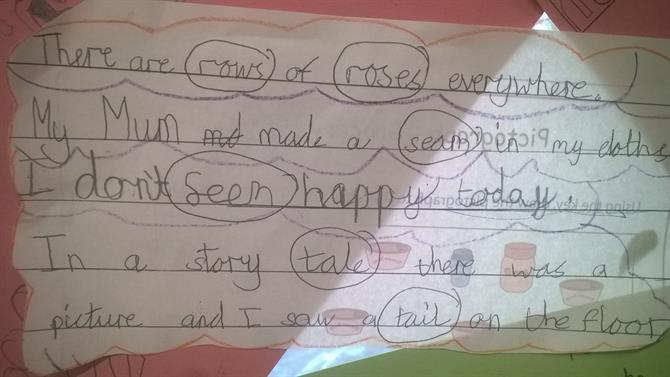 There are rows of roses everywhere.
My Mum made a seam in my cloths
I don't Seen happy today.
In a story tale there was a
picture and I saw a tail on the floor